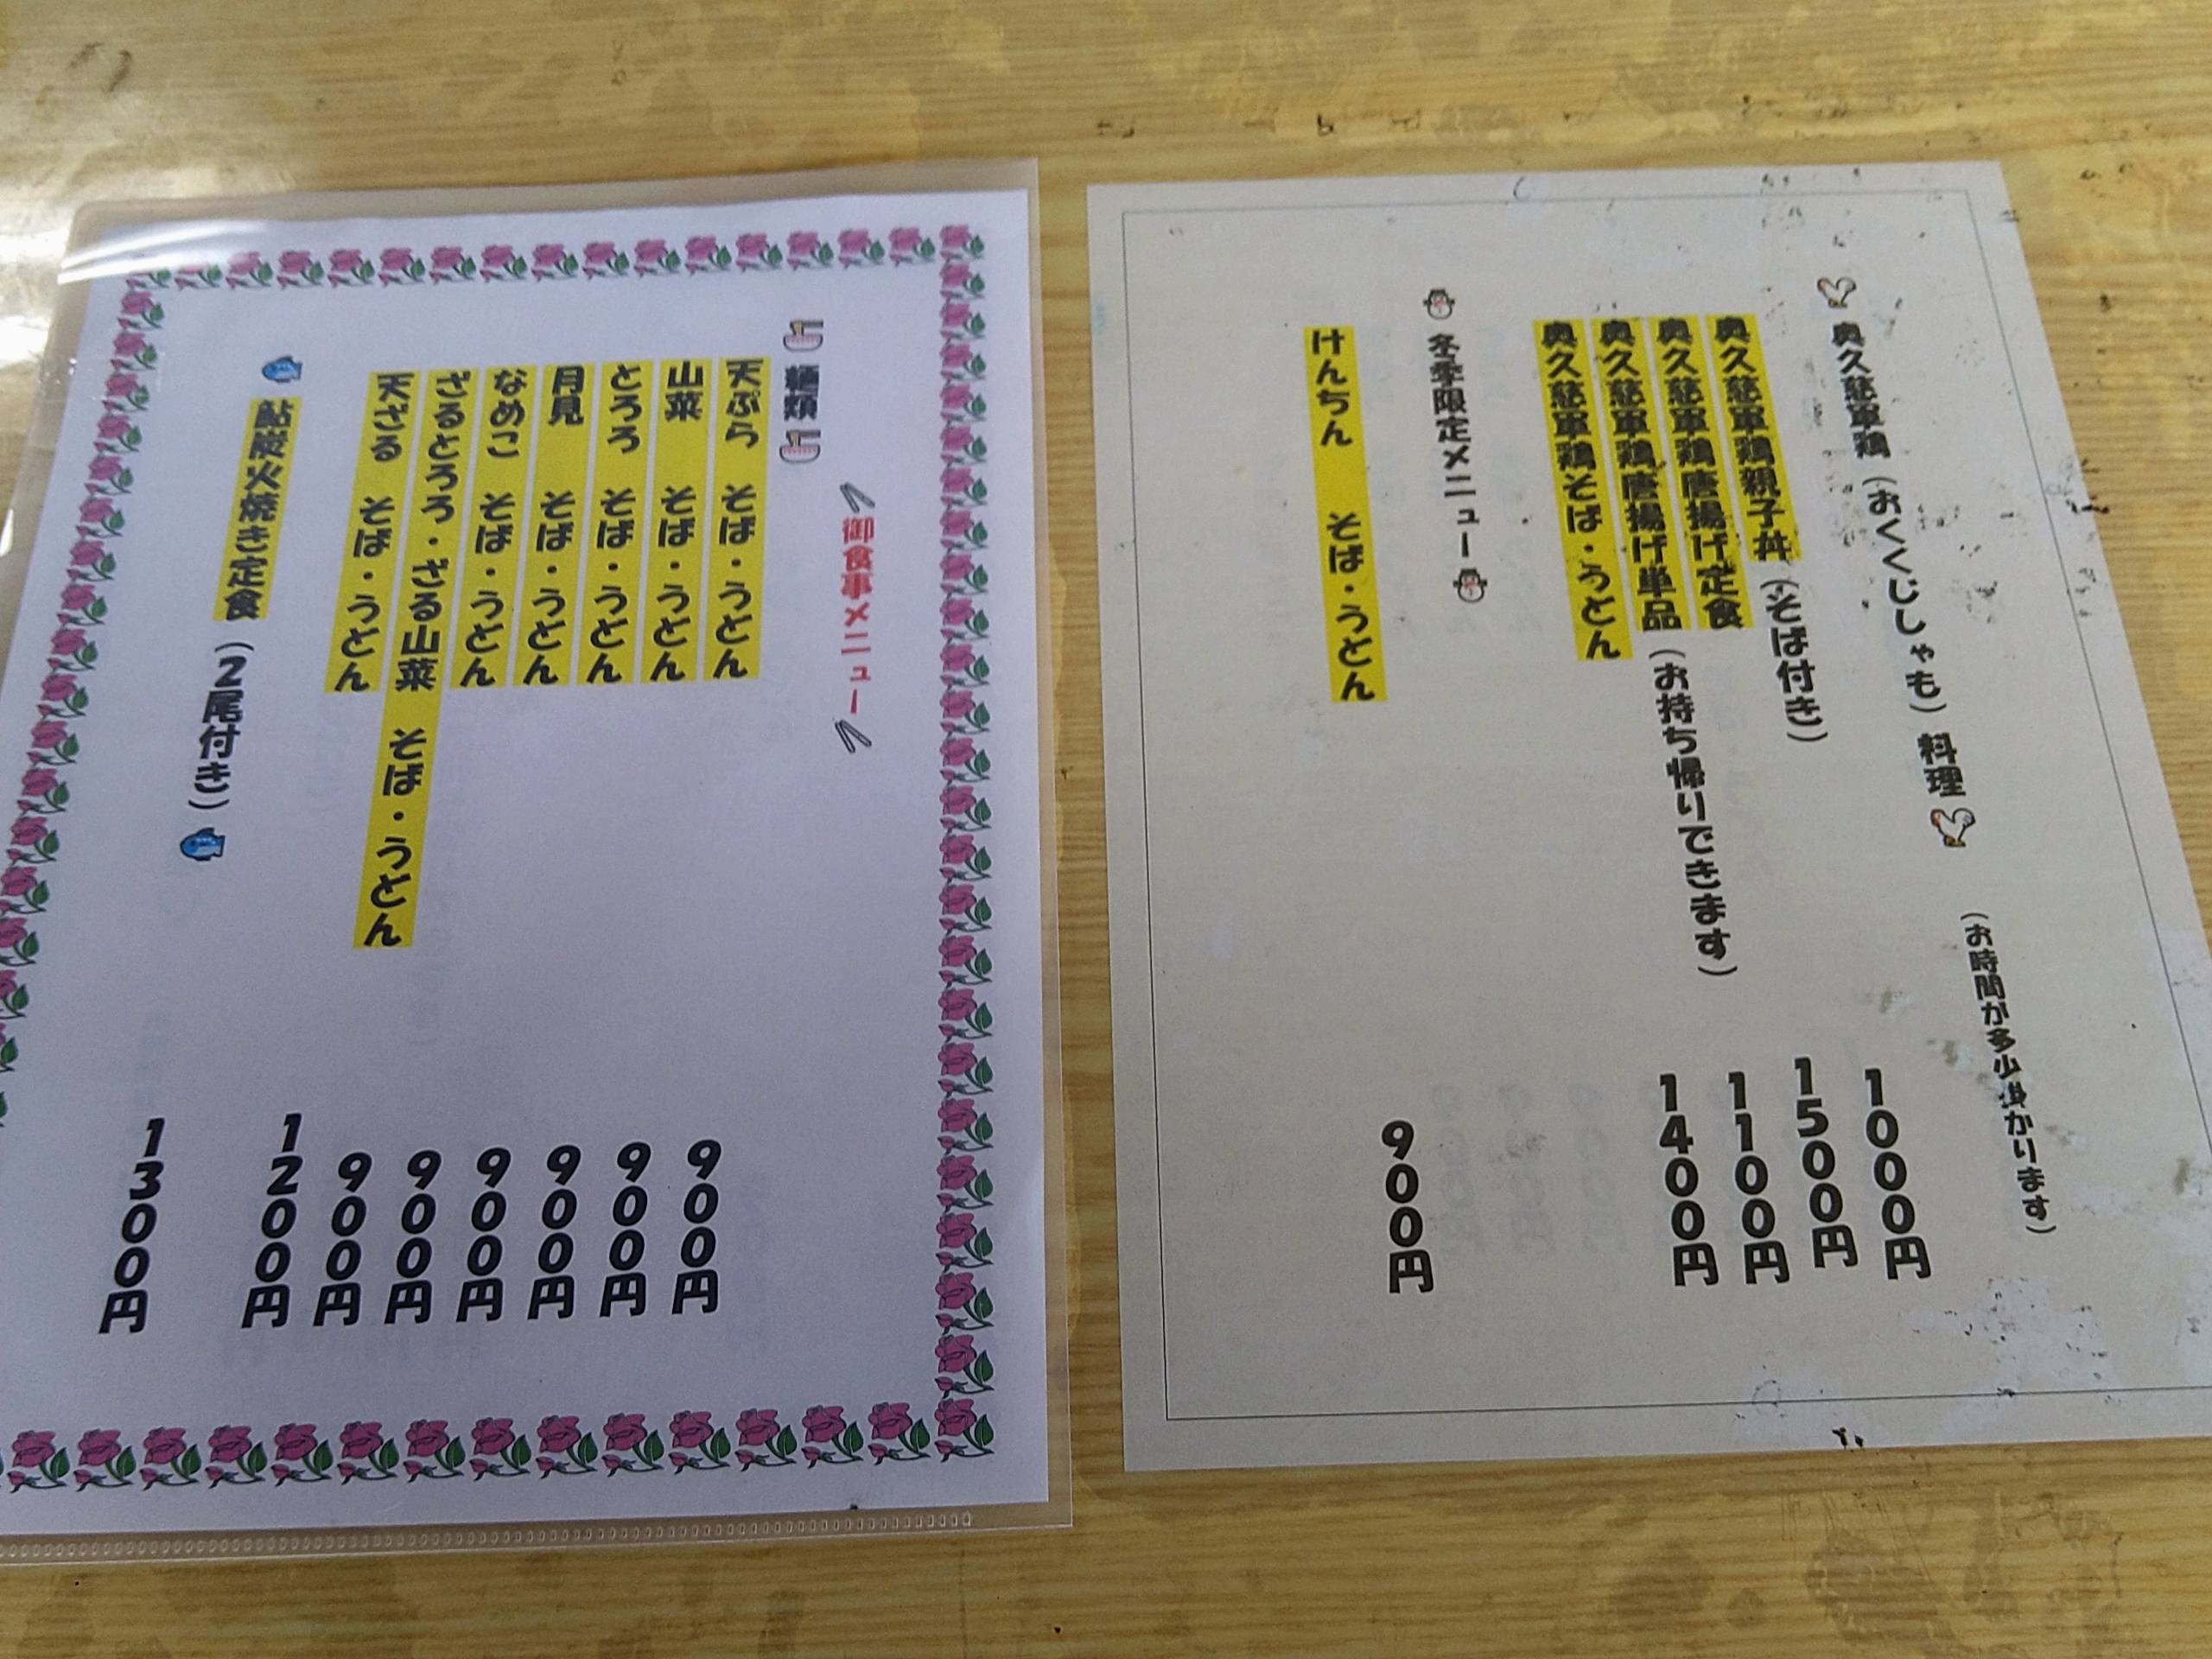 奥久慈軍鶏（おくくじしゃも）料理（お時間が多少掛かります）
奥久慈軍鶏親子丼（そば付き） 1000円
奥久慈軍鶏唐揚げ定食 1500円
奥久慈軍鶏唐揚げ単品（お持ち帰りできます） 1100円
奥久慈軍鶏そば・うどん 1400円
冬季限定メニュー
けんちん そば・うどん 900円
御食事メニュー
麺類
天ぷら そば・うどん 900円
山菜 そば・うどん 900円
とろろ そば・うどん 900円
月見 そば・うどん 900円
なめこ そば・うどん 900円
ざるとろろ・ざる山菜 そば・うどん 900円
天ざる そば・うどん 1200円
鮎炭火焼き定食（2尾付き） 1300円